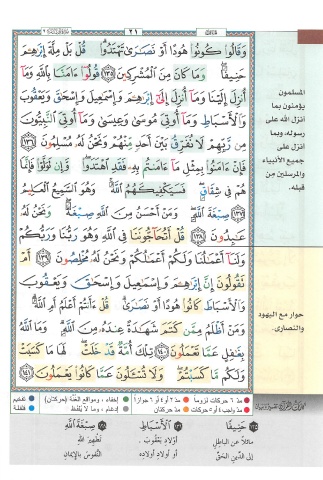 ٢١
وَقَالُوا۟ كُونُوا۟ هُودًا أَوْ نَصَـٰرَىٰ تَهْتَدُوا۟ ۗ قُلْ بَلْ مِلَّةَ إِبْرَٰهِـۧمَ
حَنِيفًا ۖ وَمَا كَانَ مِنَ ٱلْمُشْرِكِينَ ١٣٥ قُولُوٓا۟ ءَامَنَّا بِٱللَّهِ وَمَآ
أُنزِلَ إِلَيْنَا وَمَآ أُنزِلَ إِلَىٰٓ إِبْرَٰهِـۧمَ وَإِسْمَـٰعِيلَ وَإِسْحَـٰقَ وَيَعْقُوبَ
وَٱلْأَسْبَاطِ وَمَآ أُوتِىَ مُوسَىٰ وَعِيسَىٰ وَمَآ أُوتِىَ ٱلنَّبِيُّونَ
مِن رَّبِّهِمْ لَا نُفَرِّقُ بَيْنَ أَحَدٍ مِّنْهُمْ وَنَحْنُ لَهُۥ مُسْلِمُونَ ١٣٦
فَإِنْ ءَامَنُوا۟ بِمِثْلِ مَآ ءَامَنتُم بِهِۦ فَقَدِ ٱهْتَدَوا۟ ۖ وَّإِن تَوَلَّوْا۟ فَإِنَّمَا
هُمْ فِى شِقَاقٍ ۖ فَسَيَكْفِيكَهُمُ ٱللَّهُ ۚ وَهُوَ ٱلسَّمِيعُ ٱلْعَلِيمُ
١٣٧ صِبْغَةَ ٱللَّهِ ۖ وَمَنْ أَحْسَنُ مِنَ ٱللَّهِ صِبْغَةً ۖ وَنَحْنُ لَهُۥ
عَـٰبِدُونَ ١٣٨ قُلْ أَتُحَآجُّونَنَا فِى ٱللَّهِ وَهُوَ رَبُّنَا وَرَبُّكُمْ
وَلَنَآ أَعْمَـٰلُنَا وَلَكُمْ أَعْمَـٰلُكُمْ وَنَحْنُ لَهُۥ مُخْلِصُونَ ١٣٩ أَمْ
تَقُولُونَ إِنَّ إِبْرَٰهِـۧمَ وَإِسْمَـٰعِيلَ وَإِسْحَـٰقَ وَيَعْقُوبَ
وَٱلْأَسْبَاطَ كَانُوا۟ هُودًا أَوْ نَصَـٰرَىٰ ۗ قُلْ ءَأَنتُمْ أَعْلَمُ أَمِ ٱللَّهُ ۗ
وَمَنْ أَظْلَمُ مِمَّن كَتَمَ شَهَـٰدَةً عِندَهُۥ مِنَ ٱللَّهِ ۗ وَمَا ٱللَّهُ
بِغَـٰفِلٍ عَمَّا تَعْمَلُونَ ١٤٠ تِلْكَ أُمَّةٌ قَدْ خَلَتْ ۖ لَهَا مَا كَسَبَتْ
وَلَكُم مَّا كَسَبْتُمْ ۖ وَلَا تُسْـَٔلُونَ عَمَّا كَانُوا۟ يَعْمَلُونَ ١٤١
المسلمون
يؤمنون بما
أنزل الله على
رسوله، وبما
أنزل على
جميع الأنبياء
والمرسلين من
قبله.
حوار مع اليهود
والنصارى.
مدّ ٦ حركات لزوماً مدّ ٢ أو ٤ أو ٦ جوازاً إخفاء، ومواقع الغُنَّة (حركتان) تفخيم
مدّ واجب ٤ أو ٥ حركات مدّ حركتان إدغام، وما لا يُلفَظ قلقلة
حَنِيفًا
مائلاً عن الباطل
إلى الدِّين الحقّ
ٱلْأَسْبَاطِ
أولاد يعقوب.
أو أولاد أولاده
صِبْغَةَ ٱللَّهِ
تطهير الله
النُّفوسَ بالإيمان